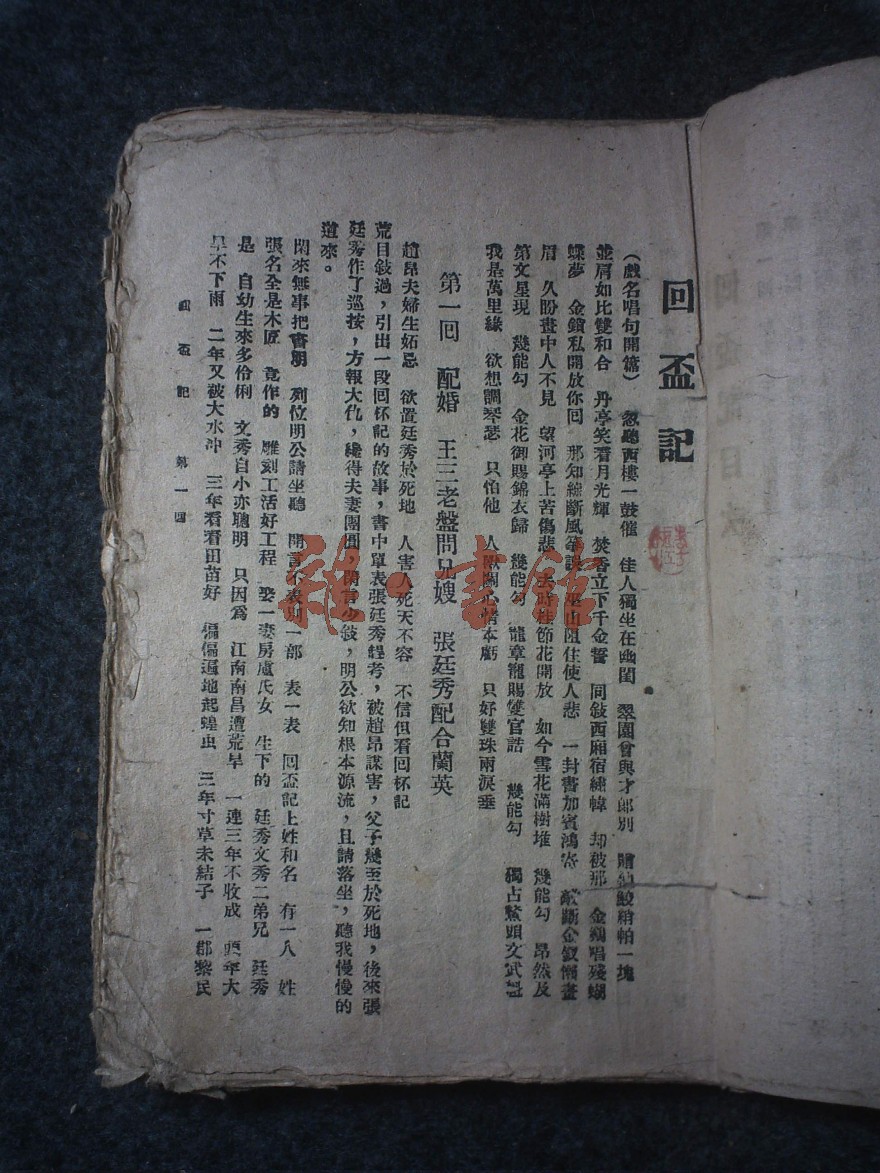 回盃記
(戲名唱句開篇) 忽聽西樓一鼓催 佳人獨坐在幽閨 翠園曾與才郎別 贈帕一塊
並肩如比雙和合 丹亭笑看月光輝 焚香立下千金誓 同敍西廂宿繡幃 却被那 金鷄唱殘蝴
蝶夢 金鎖私開放你回 那知線斷風箏 阻住使人悲 一封書加賓鴻寄 斷金釵懶畫
眉 久盼畫中人不見 望河亭上苦傷悲 節花開放 如今雪花滿樹堆 幾能勾 昂然及
第文星現 幾能勾 金花御賜錦衣歸 幾能勾 龍章寵賜雙官誥 幾能勾 獨占鰲頭文武
我是萬里緣 欲想調琴瑟 只怕他 人 關心情本虧 只好雙珠兩淚垂
第一回 配婚 王三老盤問兄嫂 張廷秀配合蘭英
趙昂夫婦生妬忌 欲置廷秀於死地 人害人死天不容 不信但看回杯記
荒目敍過，引出一段回杯記的故事，書中單表張廷秀趕考，被趙昂謀害，父子幾至於死地，後來張
廷秀作了巡按，方報大仇，纔得夫妻團圓，閑言少敍，明公欲知根本源流，且請落坐，聽我慢慢的
道來。
閑來無事把書明 列位明公請坐聽 開言不表別一部 表一表 回盃記上姓和名 有一人 姓
張名全是木匠 竟作的 雕刻工活好工程 娶一妻房盧氏女 生下的 廷秀文秀二弟兄 廷秀
是 自幼生來多伶俐 文秀自小亦聰明 只因爲 江南南昌遭荒旱 一連三年不收成 頭年大
旱不下雨 二年又被大水沖 三年看看田苗好 偏偏遍地起蝗虫 三年寸草未結子 一郡黎民
回盃記 第一回
雜·書館